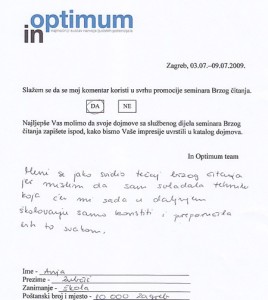 in optimum
Zagreb, 03.07.-09.07.2009.
Slažem se da se moj komentar koristi u svrhu promocije seminara Brzog čitanja.
DA NE
Najljepše Vas molimo da svoje dojmove sa službenog dijela seminara Brzog
čitanja zapišete ispod, kako bismo Vaše impresije uvrstili u katalog dojmova.
In Optimum team
Meni se jako svidio tečaj brzog čitanja
jer mislim da sam savladala tehniku
koja će mi sada u daljnjem
školovanju samo koristiti i preporučila
bih to svakom.
Ime - Anja
Prezime -
Zanimanje - škola
Poštanski broj i mjesto - 10 000 Zagreb